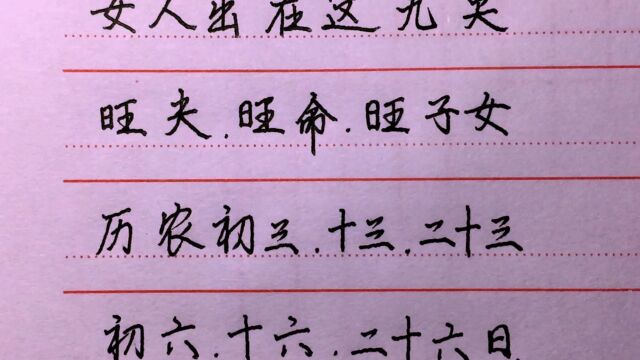 女人出在这九天
旺夫.旺命.旺子女
历农初三.十三.二十三
初六.十六.二十六日